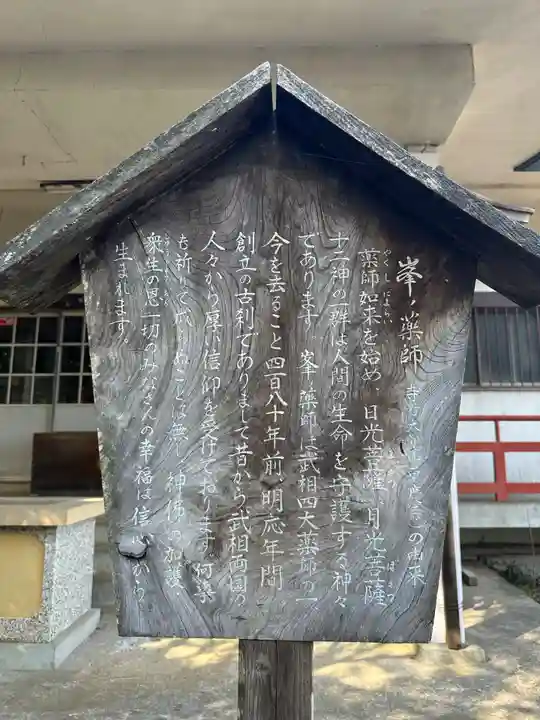 峯ノ薬師 の由来
薬師如来を始め、日光菩薩、月光菩薩
十二神の一群は人間の生命を守護する神々
であります 峯ノ薬師は武相四大薬師の一
今を去ること四百八十年前、明応年間
創立の古刹でありまして昔から武相両国の
人々から厚い信仰を受けております 何事
も祈りて成らぬことは無し 神佛の加護、
衆生の恩一切のみなさんの幸福は信心から
生まれます。